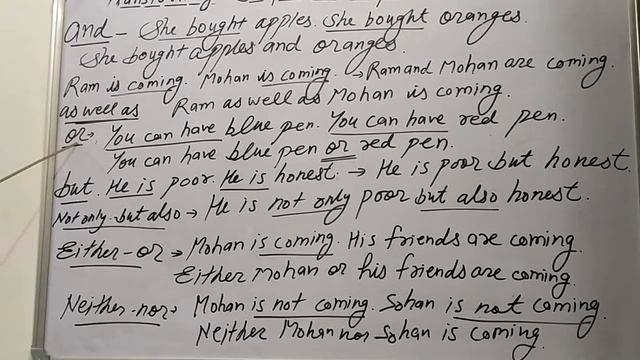 And - She bought apples. She bought oranges.
She bought apples and oranges.
Ram is coming. Mohan is coming. → Ram and Mohan are coming.
as well as Ram as well as Mohan is coming.
or → You can have blue pen. You can have red pen.
You can have blue pen or red pen.
but. He is poor. He is honest. → He is poor but honest.
Not only - but also → He is not only poor but also honest.
Either - or → Mohan is coming. His friends are coming.
Either Mohan or his friends are coming.
Neither - nor → Mohan is not coming. Sohan is not coming.
Neither Mohan nor Sohan is coming.